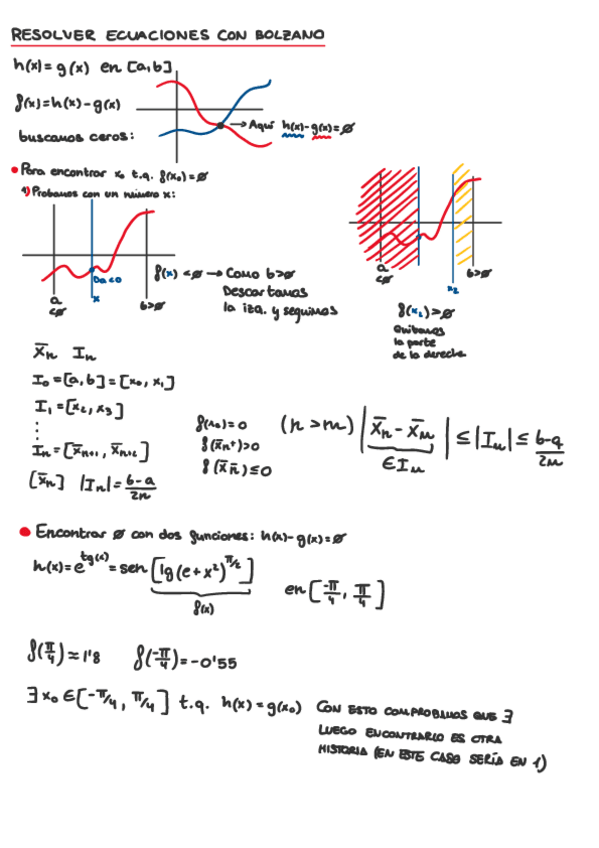 RESOLVER ECUACIONES CON BOLZANO
h(x) = g(x) en [a,b]
f(x) = h(x) - g(x)
→ Aquí h(x) - g(x) = ∅
buscamos ceros:
• Para encontrar x₀ t.q. f(x₀) = ∅
1) Probamos con un número x:
Da <0
f(x) < ∅ → Como b>∅
Descartamos
la izq. y seguimos
a
<∅
x
b>∅
a
<∅
x₂
b>∅
f(x₂) > ∅
Quitamos
la parte
de la derecha
x̄n In
I₀ = [a,b] = [x₀, x₁]
I₁ = [x₂, x₃]
⋮
In = [x̄n+1, x̄n+2]
[x̄n] |In| = b-a/2n
f(x₀) = 0
f(x̄n⁺) > 0
f(x̄n̄) ≤ 0
(n > m) |x̄n - x̄m| ≤ |Im| ≤ b-a/2m
∈ Im
• Encontrar ∅ con dos funciones: h(x) - g(x) = ∅
h(x) = e^tg(x) = sen [lg(e + x²)^π/2] en [-π/4, π/4]
f(x)
f(π/4) ≈ 1'8 f(-π/4) = -0'55
∃ x₀ ∈ [-π/4, π/4] t.q. h(x) = g(x₀) CON ESTO COMPROBAMOS QUE ∃
LUEGO ENCONTRARLO ES OTRA
HISTORIA (EN ESTE CASO SERÍA EN 1)